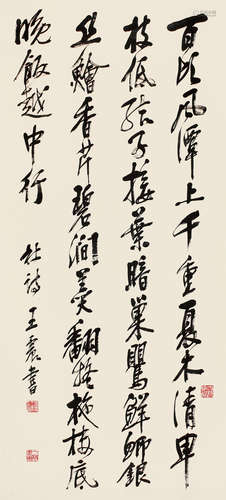 百顷风潭上千重夏木清卑
枝低结子接叶暗巢莺鲜鲫银
丝鲙香芹碧涧羹翻疑柂楼底
晚饭越中行
杜诗 王震书